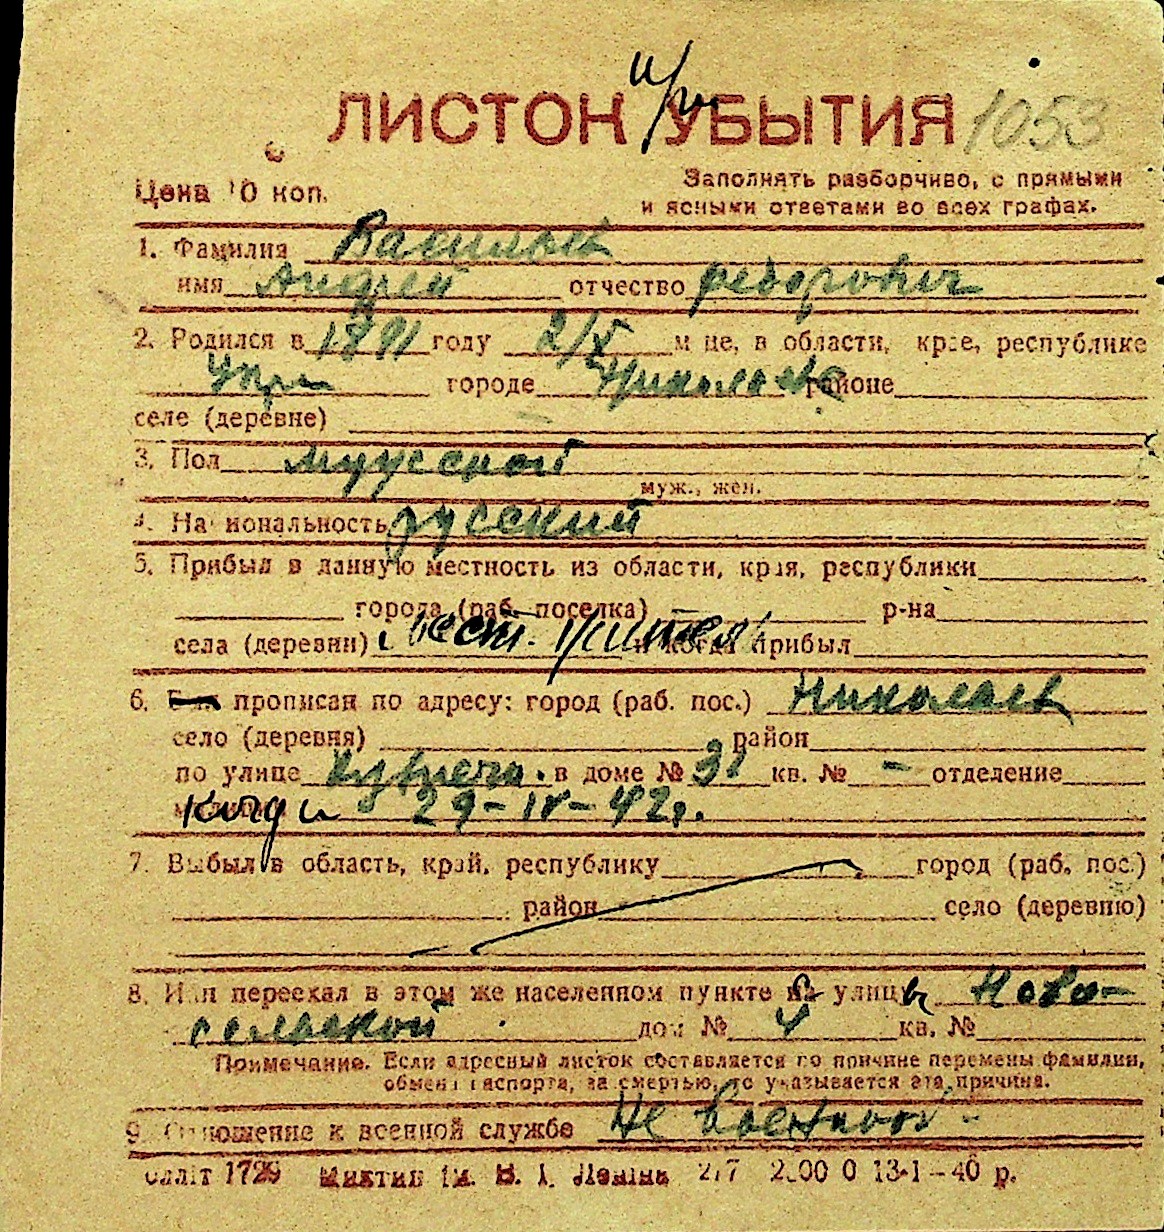 ЛИСТОК УБЫТИЯ 1053
Цена 10 коп.
Заполнять разборчиво, с прямыми
и ясными ответами во всех графах.
1. Фамилия Васильев
имя Андрей отчество Федорович
2. Родился в 1891 году 2/X м це, в области, крае, республике
Укр городе Николаеве районе
селе (деревне)
3. Пол мужской
муж., жен.
4. Национальность русский
5. Прибыл в данную местность из области, края, республики
города (раб. поселка) р-на
села (деревни) мест. житель и когда прибыл
6. прописан по адресу: город (раб. пос.) Николаев
село (деревня) район
по улице Кузнечн. в доме № 31 кв. № – отделение
Когда 29-IV-42г.
7. Выбыл в область, край, республику город (раб. пос.)
район село (деревню)
8. Или переехал в этом же населенном пункте улицы Ново-
сельской дом № 4 кв. №
Примечание. Если адресный листок составляется по причине перемены фамилии,
обмена паспорта, за смертью, то указывается эта причина.
9. Отношение к военной службе Не военнооб-
1729 В. І. Леніна 2/7 13-1-40 р.